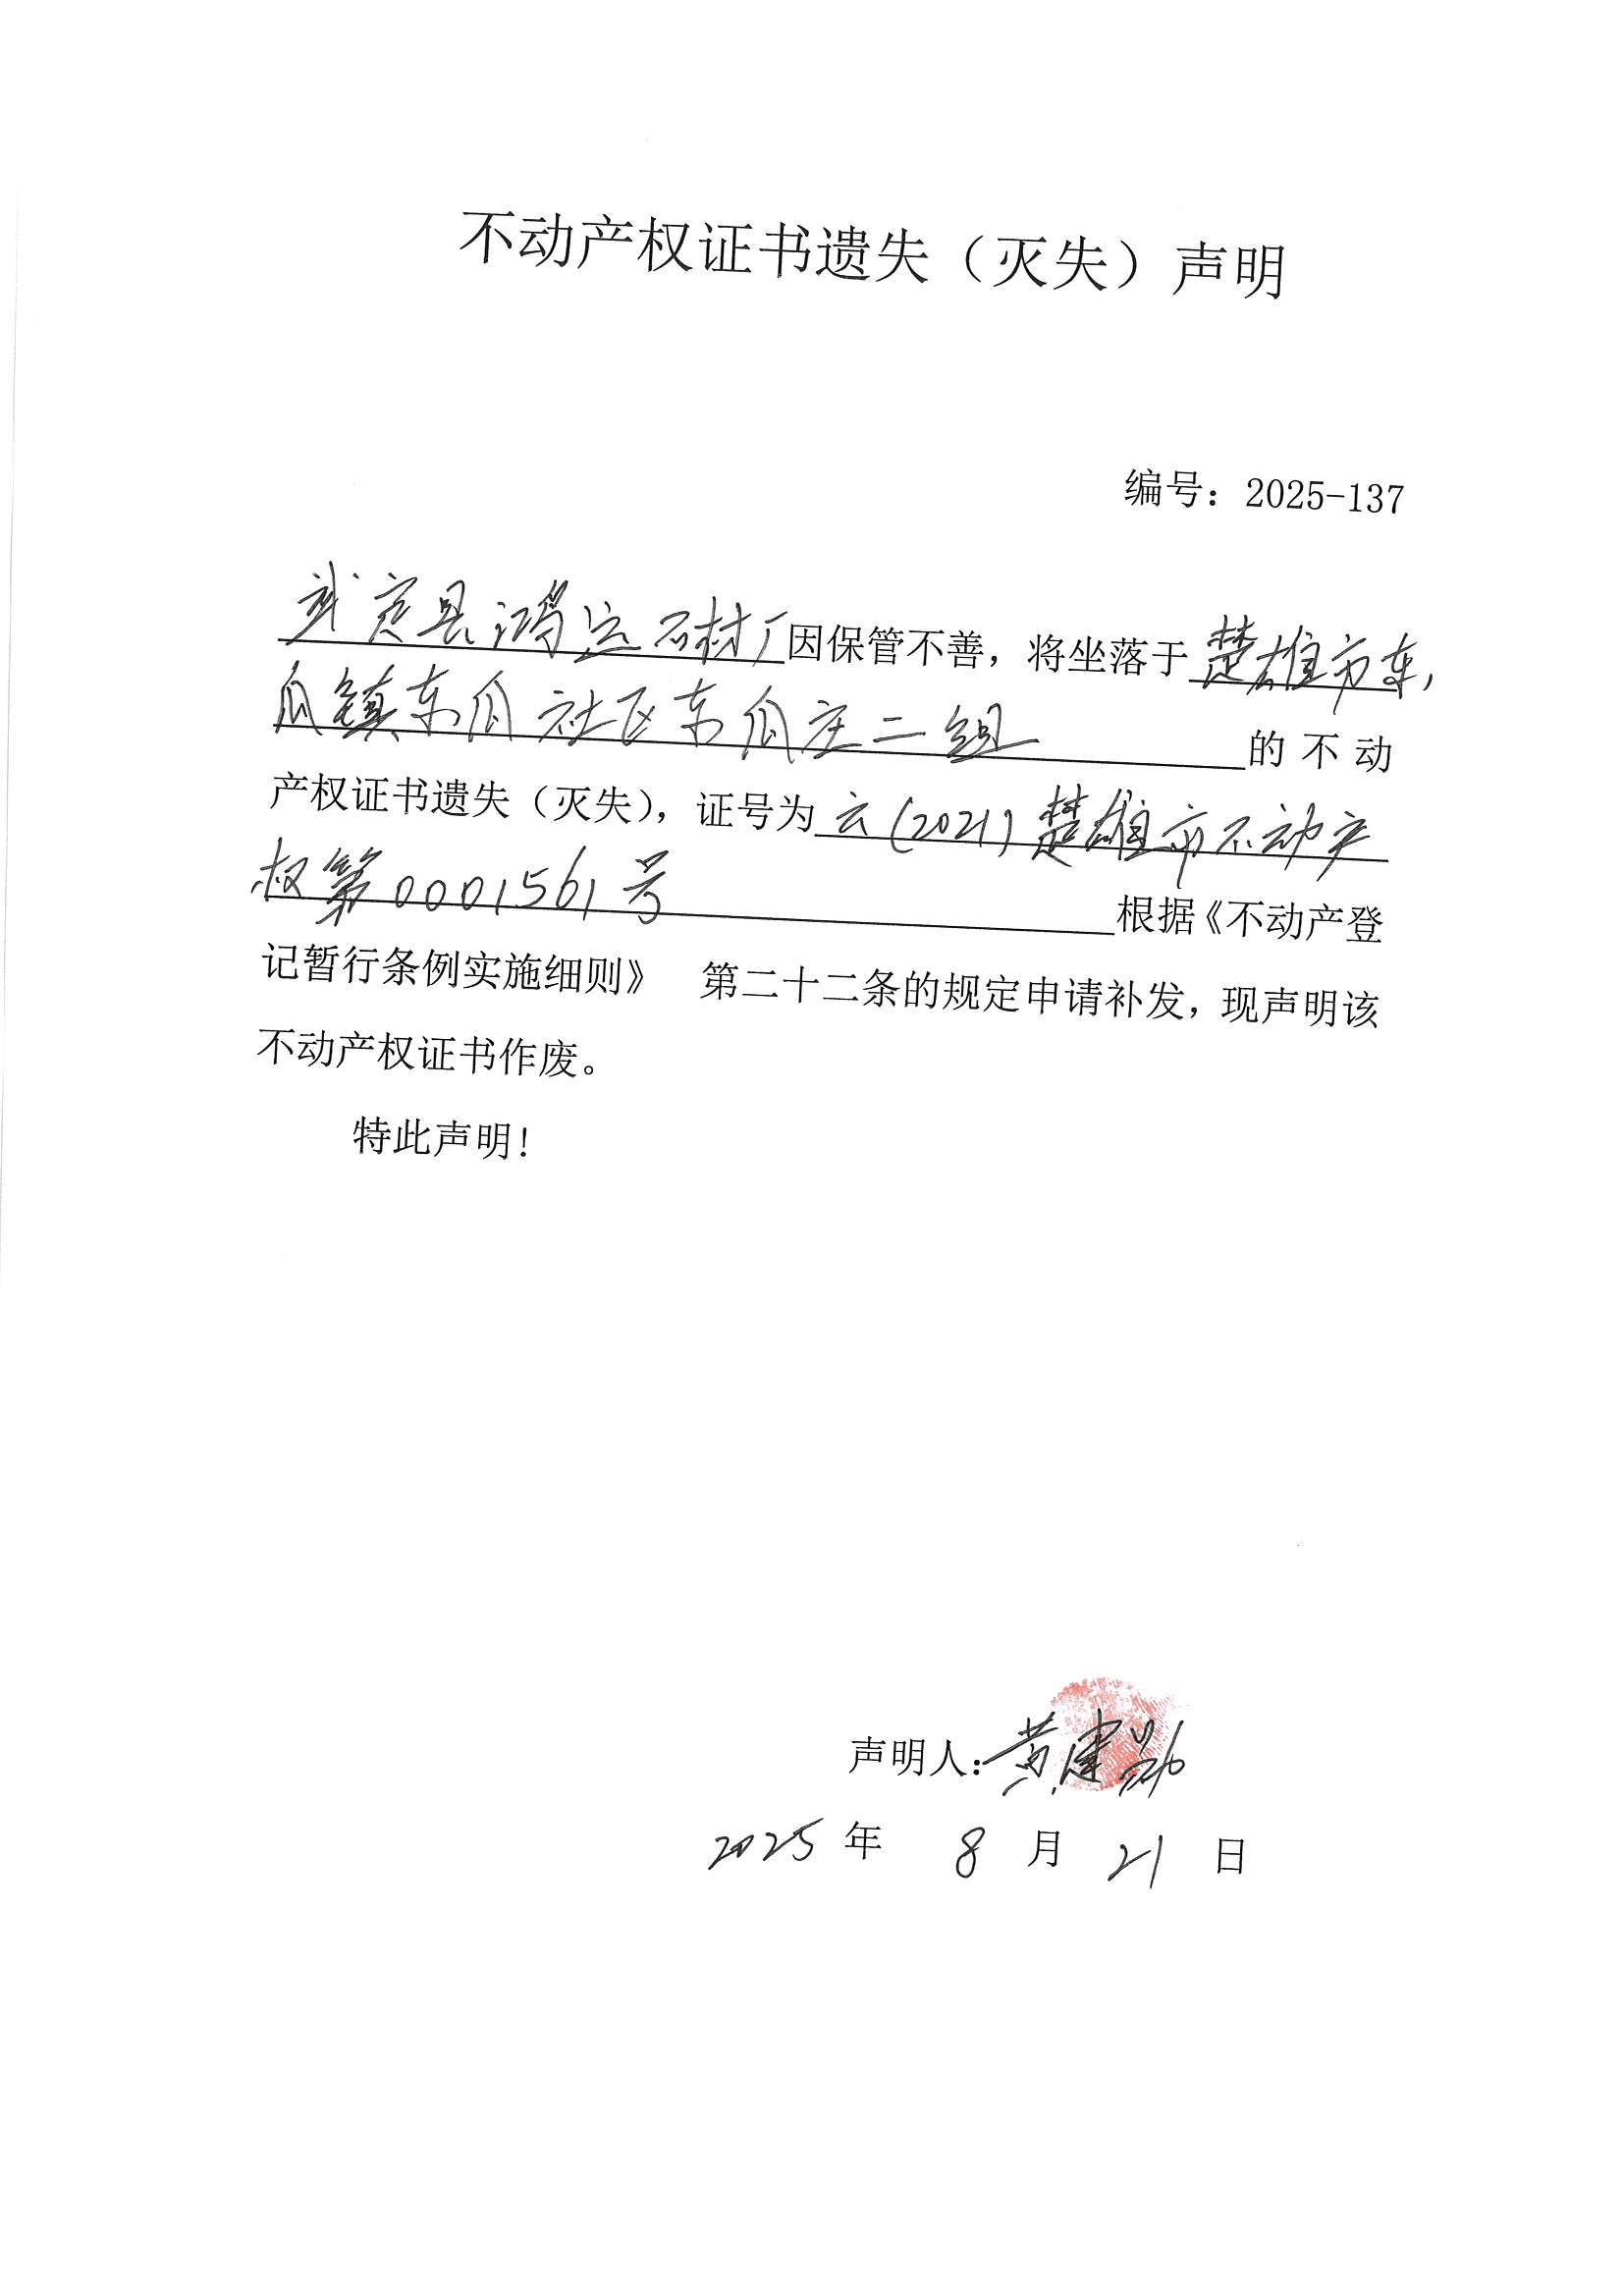 不动产权证书遗失（灭失）声明
编号：2025-137
武定县鸿运石材厂因保管不善，将坐落于楚雄市东
瓜镇东瓜社区东瓜庄二组的不动
产权证书遗失（灭失），证号为云(2021)楚雄市不动产
权第0001561号根据《不动产登
记暂行条例实施细则》 第二十二条的规定申请补发，现声明该
不动产权证书作废。
特此声明！
声明人：黄建勋
2025年 8 月 21 日